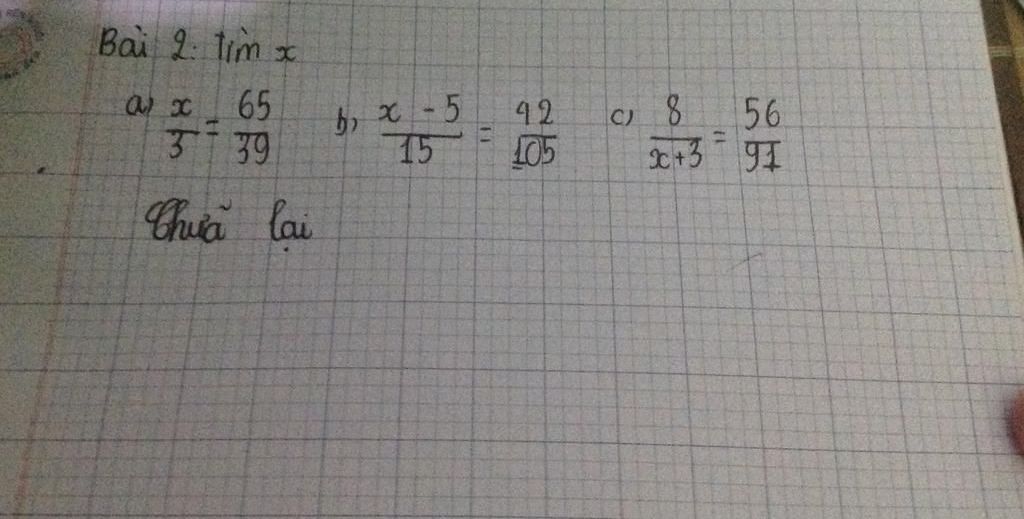 Bài 2: Tìm x
a) x/3 = 65/39 b) x - 5/15 = 42/105 c) 8/x+3 = 56/91
Chữa lại